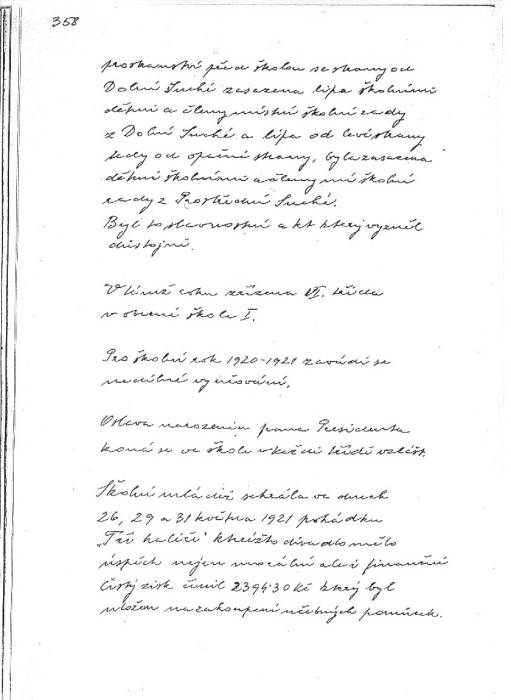 358
prostranství před školou se strany od
Dolní Suché zasazena lípa školními
dětmi a členy místní školní rady
z Dolní Suché a lípa od levé strany
tedy od opační strany, byla zasazena
dětmi školními a členy mí školní
rady z Prostřední Suché.
Byl to slavnostní akt který vyzněl
důstojně.
V témž roku zřízena VI. třída
v obecné škole I.
Pro školní rok 1920-1921 zavádí se
nedílné vyučování.
Oslava narozenin pana Presidenta
koná se ve škole v každé třídě zvlášt.
Školní mládež sehrála ve dnech
26, 29 a 31 května 1921 pohádku
„Tři haléři" kteréžto divadlo mělo
úspěch nejen morální ale i finanční
čistý zisk činil 2394·30 Kč který byl
uložen na zakoupení učebných pomůcek.